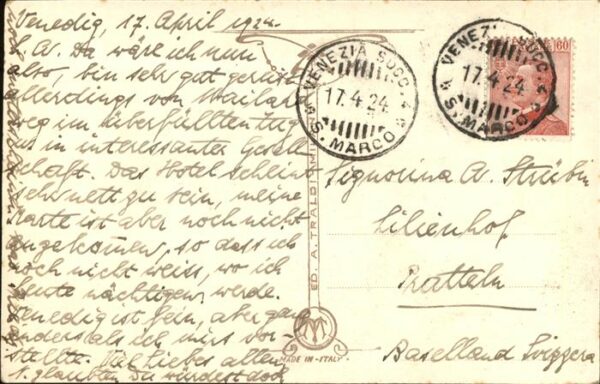 Venedig, 17. April 1924.
L. Av. Da wäre ich nun
also, bin sehr gut gereist
allerdings von Mailand
weg im überfüllten Zug
u. in interessanter Gesell
schaft. Das Hotel scheint
sehr nett zu sein, meine
Karte ist aber noch nicht
angekommen, so dass ich
noch nicht weiss, wo ich
heute nächtigen werde.
Venedig ist fein, aber ganz
anders als ich mirs vor-
stellte. Viel Liebes allen
N. glaubten Du würdest doch
VENEZIA SUCC. 4
17.4.24
S. MARCO
VENEZIA SUCC. 4
17.4.24
S. MARCO
60
Signorina Av. Strübin
Lilienhof
Pratteln
Baselland Svizzera
ED. A. TRALDI MILANO
MADE IN ITALY